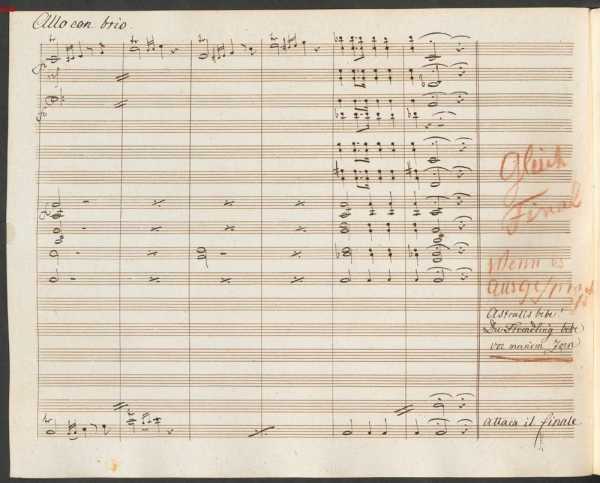 Allo con brio
Gleich
Final
Wenn es
Astralis bebe!
Du Fremdling bebe
vor meinem Zorn
attacca il finale